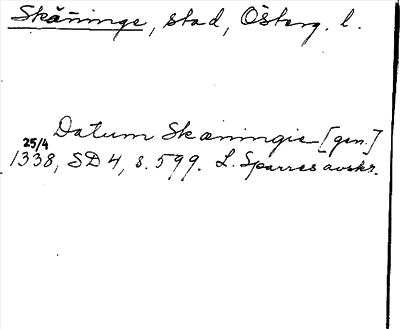 Skäninge, stad, Österg. l.
Datum Skæningie [gen.]
25/4
1338, SD 4, s. 599. L. Sparres avskr.